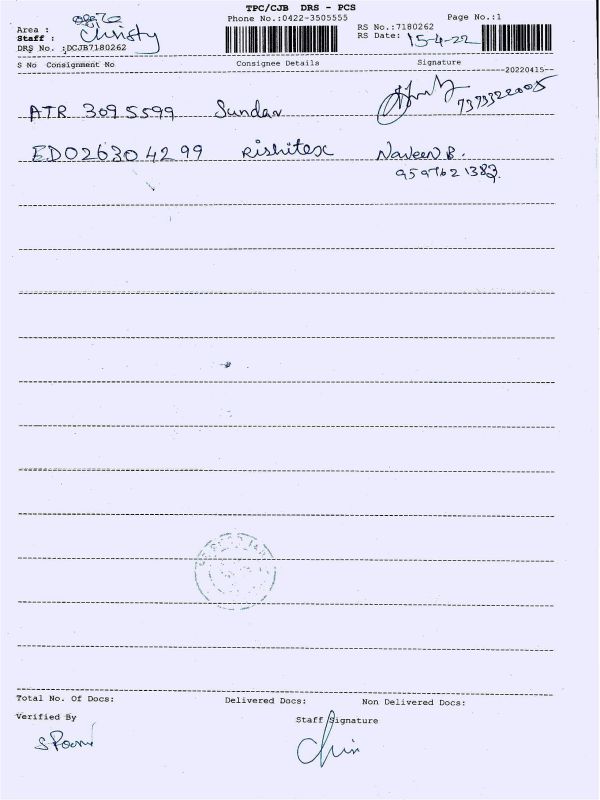 TPC/CJB DRS - PCS
Phone No.:0422-3505555
Page No.:1
RS No.:7180262
RS Date: 15-4-22
Area :
Staff : Christy
DRS No. :DCJB7180262
S No Consignment No Consignee Details Signature
--20220415--
ATR 3095599 Sundar 7373322005
ED026304299 Rishitex Naveen B.
9597621383
Total No. Of Docs: Delivered Docs: Non Delivered Docs:
Verified By
Staff Signature